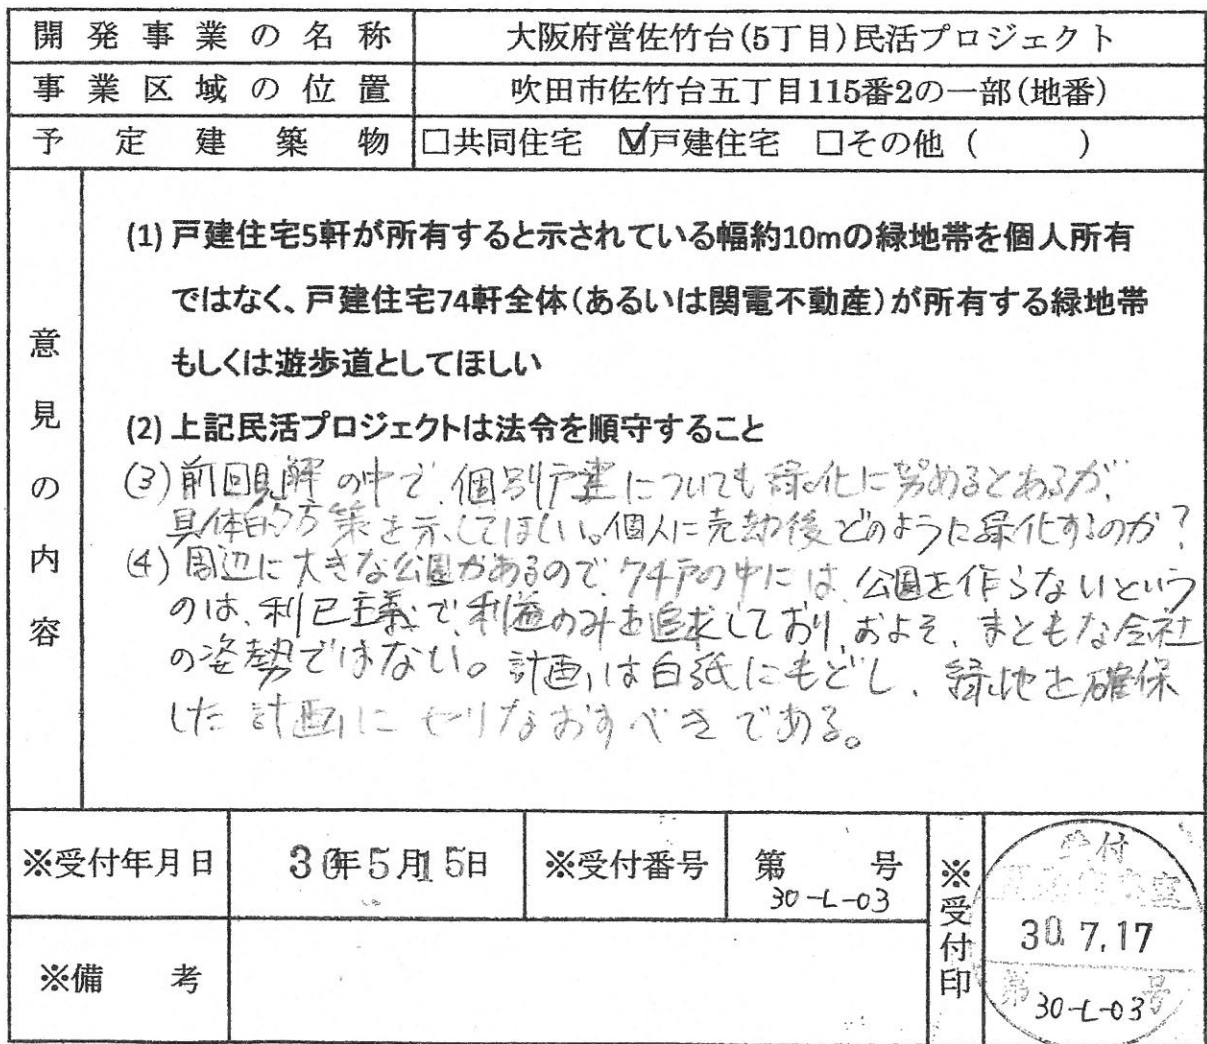 開発事業の名称 大阪府営佐竹台(5丁目)民活プロジェクト
事業区域の位置 吹田市佐竹台五丁目115番2の一部(地番)
予定建築物 □共同住宅 ☑戸建住宅 □その他 ( )
意見の内容
(1) 戸建住宅5軒が所有すると示されている幅約10mの緑地帯を個人所有
ではなく、戸建住宅74軒全体(あるいは関電不動産)が所有する緑地帯
もしくは遊歩道としてほしい
(2) 上記民活プロジェクトは法令を順守すること
(3) 前回見解の中で、個別戸建についても緑化に努めるとあるが、
具体的方策を示してほしい。個人に売却後どのように緑化するのか?
(4) 周辺に大きな公園があるので、74戸の中には、公園を作らないという
のは、利己主義で、利益のみを追求しており、およそ、まともな会社
の姿勢ではない。計画は白紙にもどし、緑地を確保
した計画にやりなおすべきである。
※受付年月日 30年5月15日 ※受付番号 第 号
30-L-03
※受付印
受付
30.7.17
第 号
30-L-03
※備 考